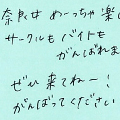 奈良は めーっちゃ楽し
サークルも バイトも
がんばれま
ぜひ 来てねー！
がんばってください